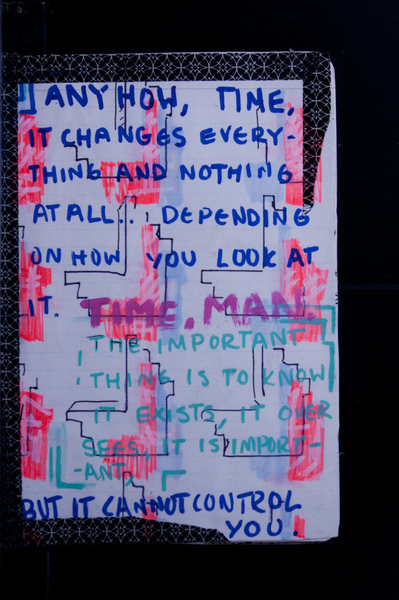 ANYHOW, TIME,
IT CHANGES EVERY-
THING AND NOTHING
AT ALL... DEPENDING
ON HOW YOU LOOK AT
IT. TIME, MAN.
THE IMPORTANT
THING IS TO KNOW
IT EXISTS, IT OVER
SEES, IT IS IMPORT-
-ANT,
BUT IT CANNOT CONTROL
YOU.